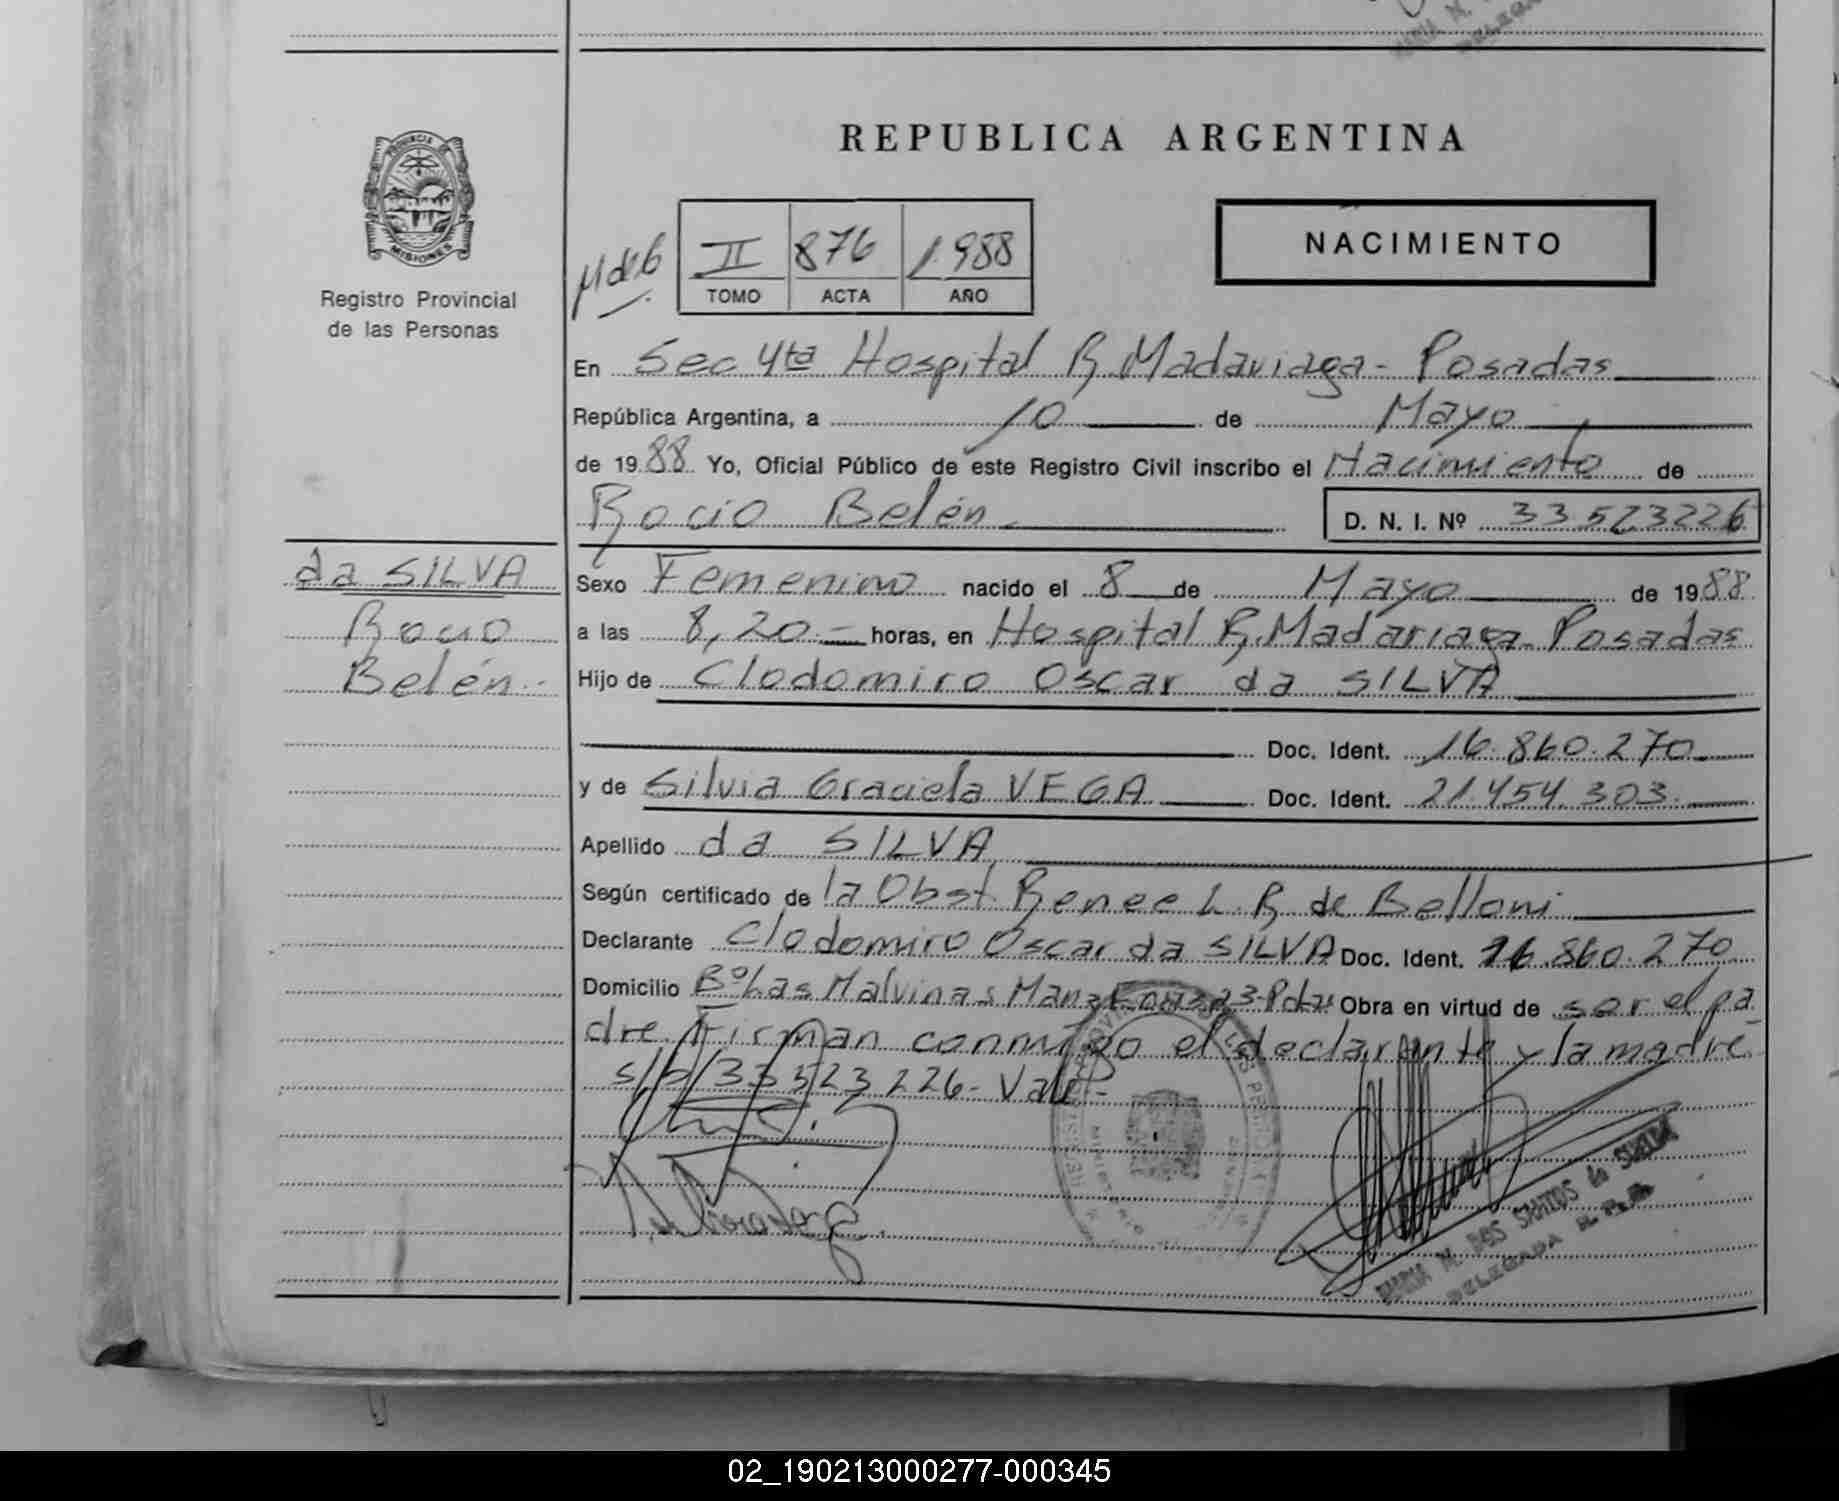 REPUBLICA ARGENTINA
PROVINCIA DE
MISIONES
Registro Provincial
de las Personas
II 876 1.988
TOMO ACTA AÑO
NACIMIENTO
En Sec 4ta Hospital R. Madariaga - Posadas
República Argentina, a 10 de Mayo
de 1988 Yo, Oficial Público de este Registro Civil inscribo el Nacimiento de
Rocio Belén D. N. I. Nº 33523226
da SILVA
Rocio
Belén.-
Sexo Femenino nacido el 8 de Mayo de 1988
a las 8,20.- horas, en Hospital R. Madariaga - Posadas
Hijo de Clodomiro Oscar da SILVA
Doc. Ident. 16.860.270
y de Silvia Graciela VEGA Doc. Ident. 21.454.303
Apellido da SILVA
Según certificado de la Obst. Renee L. R. de Belloni
Declarante Clodomiro Oscar da SILVA Doc. Ident. 16.860.270
Domicilio Bº Las Malvinas Manz Obra en virtud de ser el pa
dre. Firman conmigo el declarante y la madre.
s/b/33523226 - Vale -
MARIA M. DOS SANTOS de
DELEGADA
02_190213000277-000345